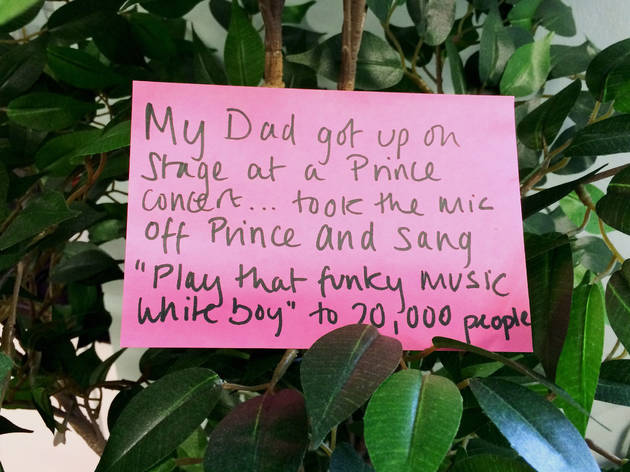 My Dad got up on
Stage at a Prince
concert... took the mic
off Prince and sang
"Play that funky music
white boy" to 20,000 people